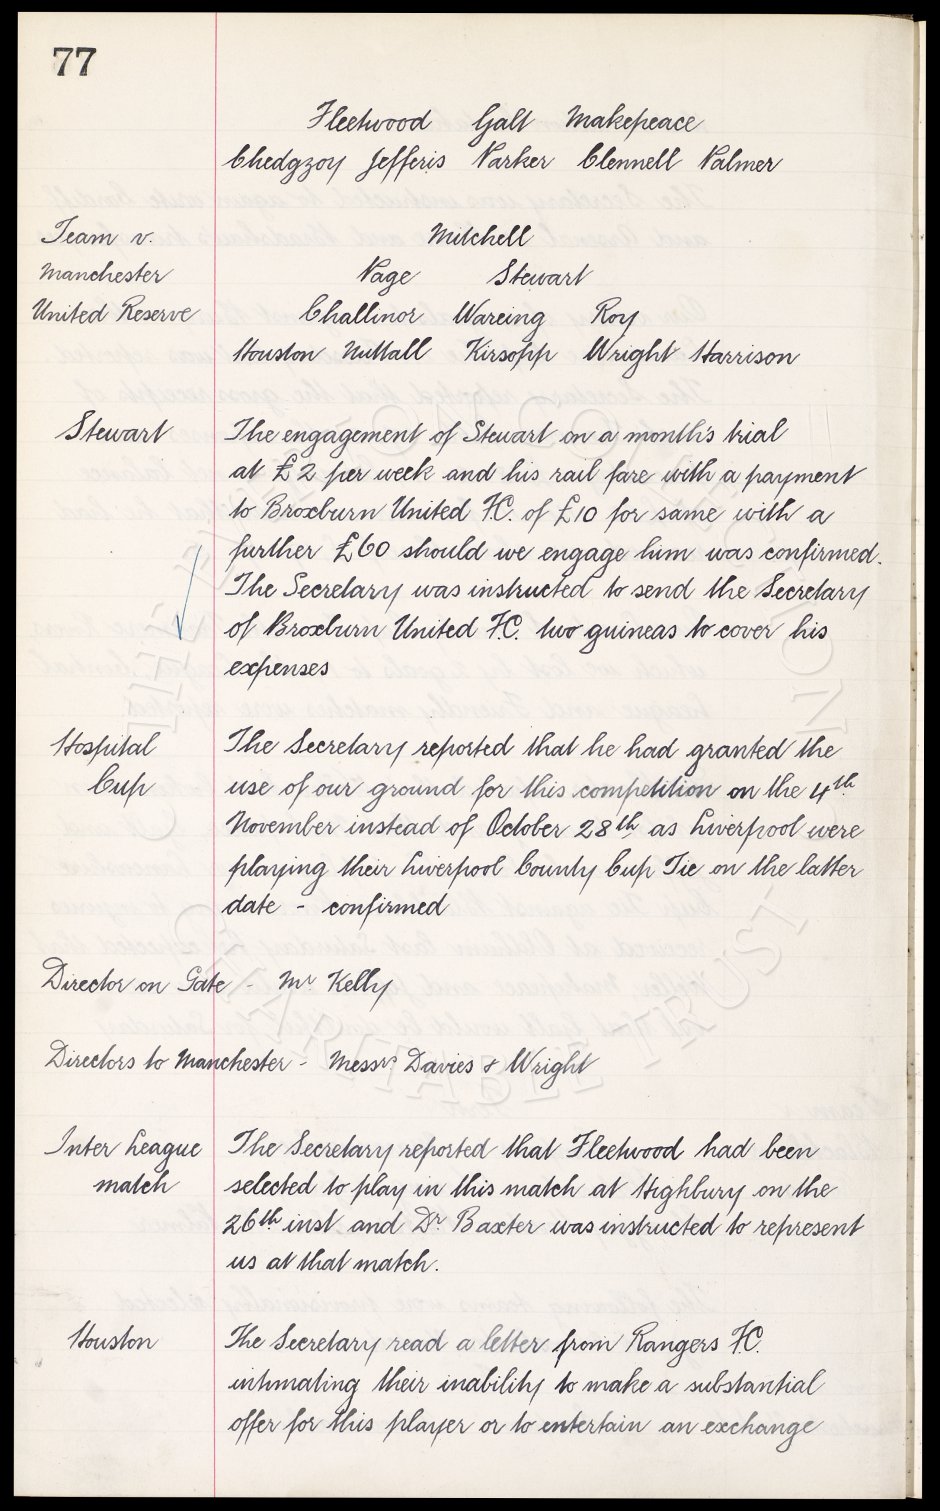 77
Fleetwood Galt Makepeace
Chedgzoy Jefferis Parker Clennell Palmer
Team v. Mitchell
Manchester Page Stewart
United Reserve Challinor Wareing Roy
Houston Nuttall Kirsopp Wright Harrison
Stewart The engagement of Stewart on a month's trial
at £2 per week and his rail fare with a payment
to Broxburn United F.C. of £10 for same with a
further £60 should we engage him was confirmed.
The Secretary was instructed to send the Secretary
of Broxburn United F.C. two guineas to cover his
expenses
Hospital The Secretary reported that he had granted the
Cup use of our ground for this competition on the 4th
November instead of October 28th as Liverpool were
playing their Liverpool County Cup Tie on the latter
date - confirmed
Director on Gate - Mr Kelly
Directors to Manchester - Messrs Davies & Wright
Inter League The Secretary reported that Fleetwood had been
match selected to play in this match at Highbury on the
26th inst and Dr Baxter was instructed to represent
us at that match.
Houston The Secretary read a letter from Rangers F.C.
intimating their inability to make a substantial
offer for this player or to entertain an exchange